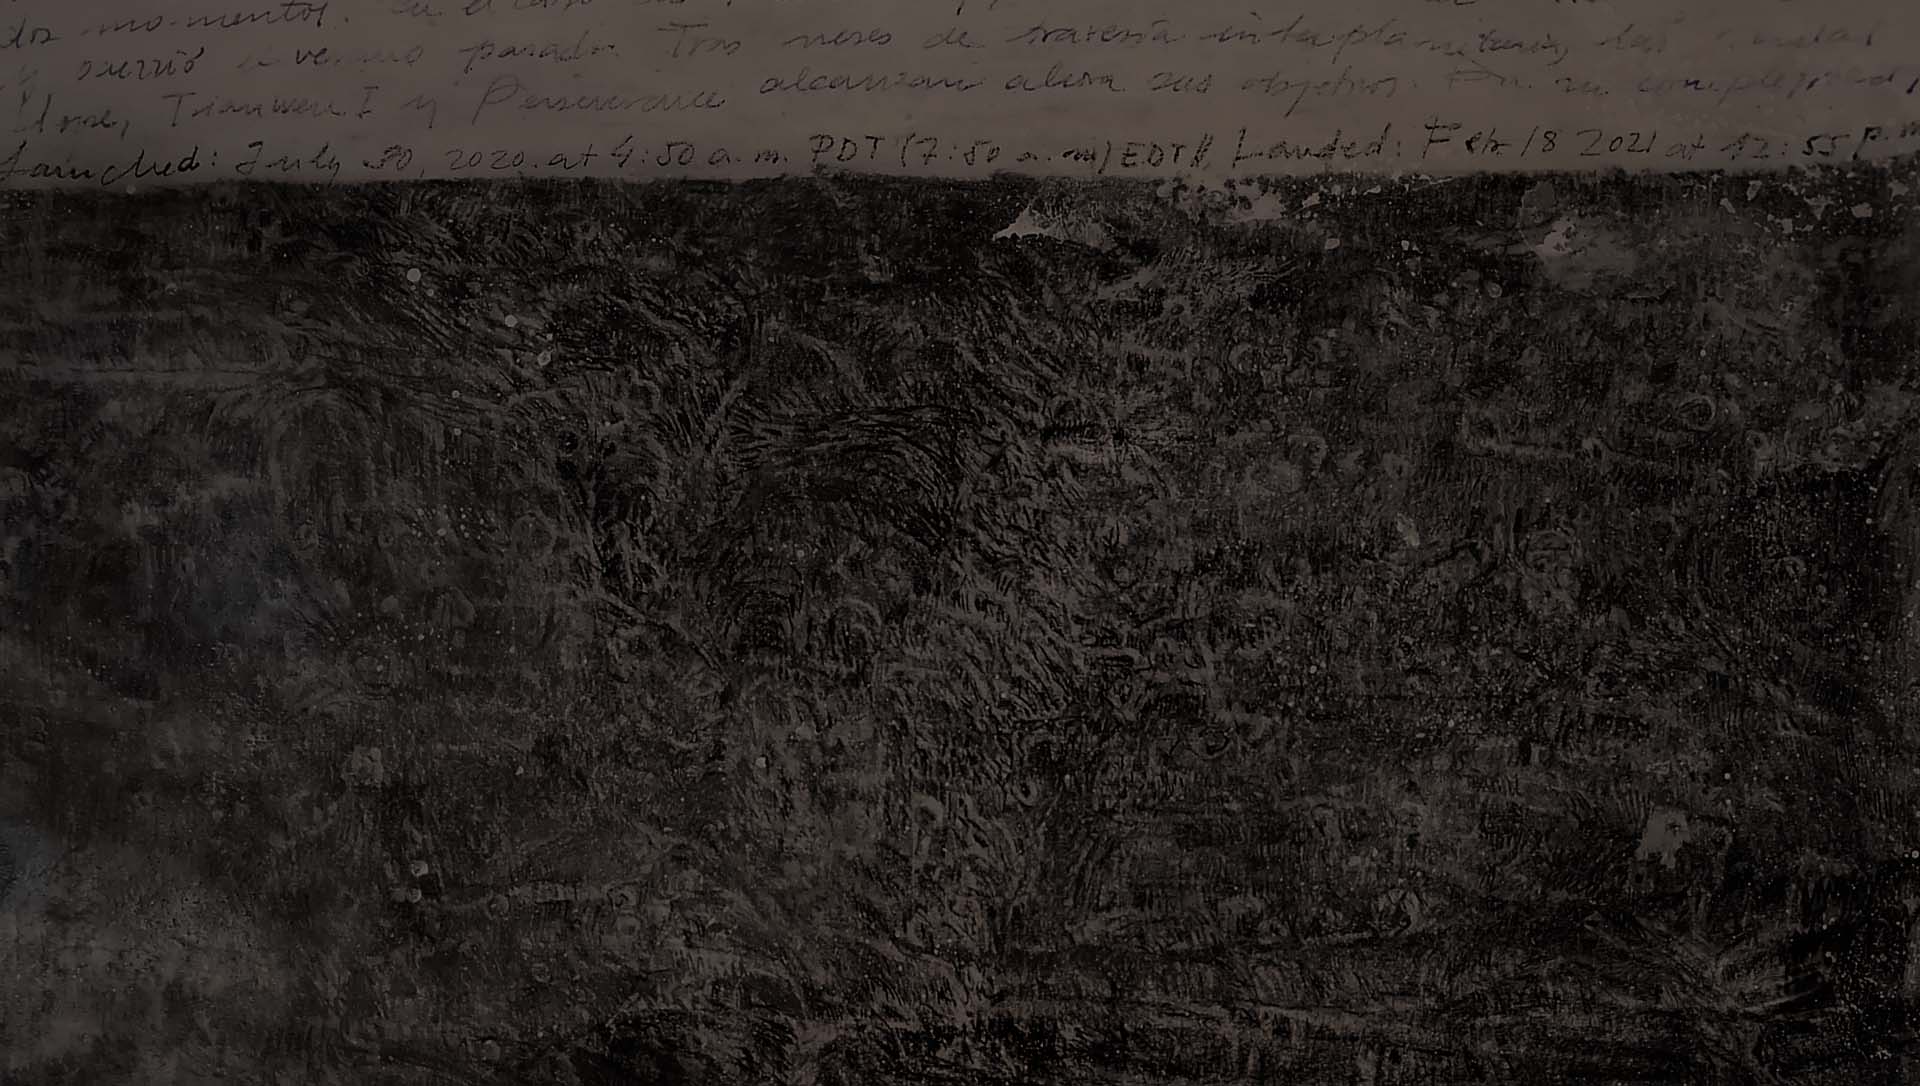 dos momentos. En el caso
y ocurrió verano pasado. Tras meses de travesía interplanetaria, las
Hope, Tianwen I y Perseverance alcanzan ahora sus objetivos. En su
Launched: July 30, 2020. at 4:50 a.m. PDT (7:50 a.m) EDT// Landed: Feb 18 2021 at 12:55 p.m